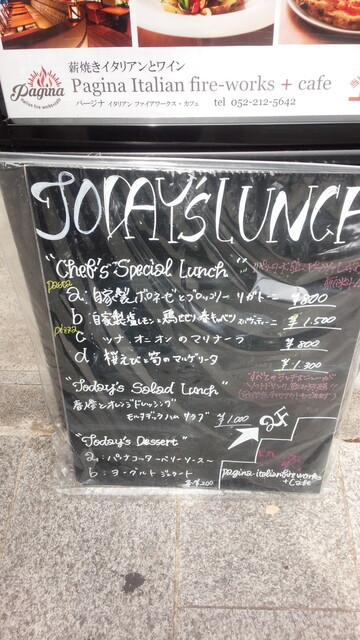 Pagina
薪焼きイタリアンとワイン
Pagina Italian fire-works + cafe
パージナ イタリアン ファイアワークス・カフェ tel 052-212-5642
TODAY'S LUNCH
"Chef's Special Lunch"
Pasta
a: 自家製ボロネーゼとブロッコリー リガトーニ ¥800
b: 自家製塩レモンと鶏ささみ 春キャベツ スパゲティーニ ¥1.500
Pizza
c: ツナ オニオンのマリナーラ ¥800
d: 桜えびと筍のマルゲリータ ¥1.300
"Today's Salad Lunch"
春野菜とオレンジドレッシング
モルタデッラハム サラダ ¥1.000
2F
"Today's Dessert"
a: パンナコッタ ーベリーソースー
b: ヨーグルト ジェラート
各¥200
pagina italian fire works
+ Cafe